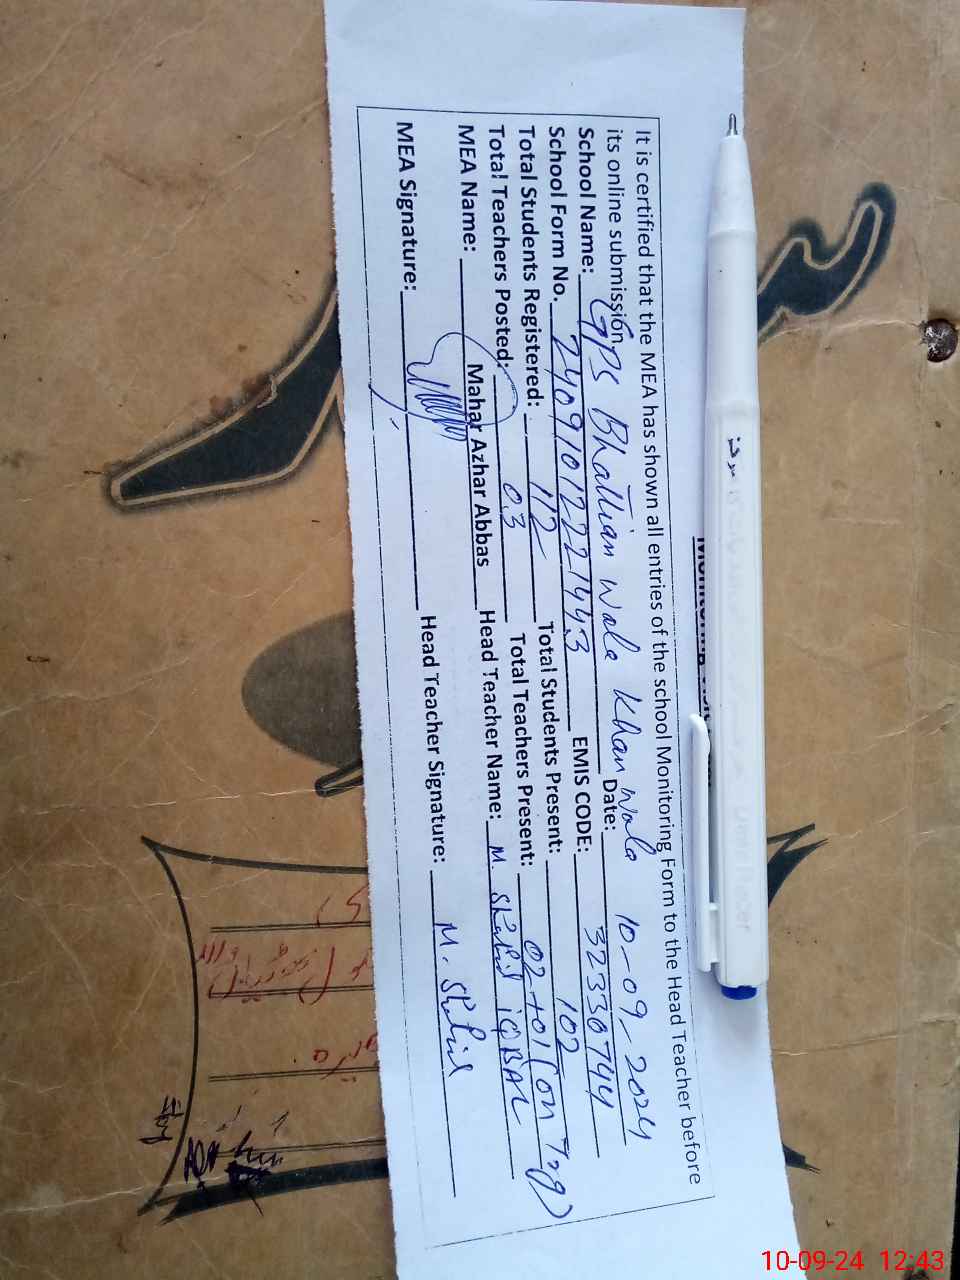 It is certified that the MEA has shown all entries of the school Monitoring Form to the Head Teacher before
its online submission.
School Name: GPS Bhattian Wala Khan Wala Date: 10-09-2024
School Form No. 24091012221443 EMIS CODE: 32330744
Total Students Registered: 112 Total Students Present: 102
Total Teachers Posted: 03 Total Teachers Present: 02+01(on Trg)
MEA Name: Mahar Azhar Abbas Head Teacher Name: M. Shahid iQBAL
MEA Signature: Head Teacher Signature: M. Shahid
10-09-24 12:43